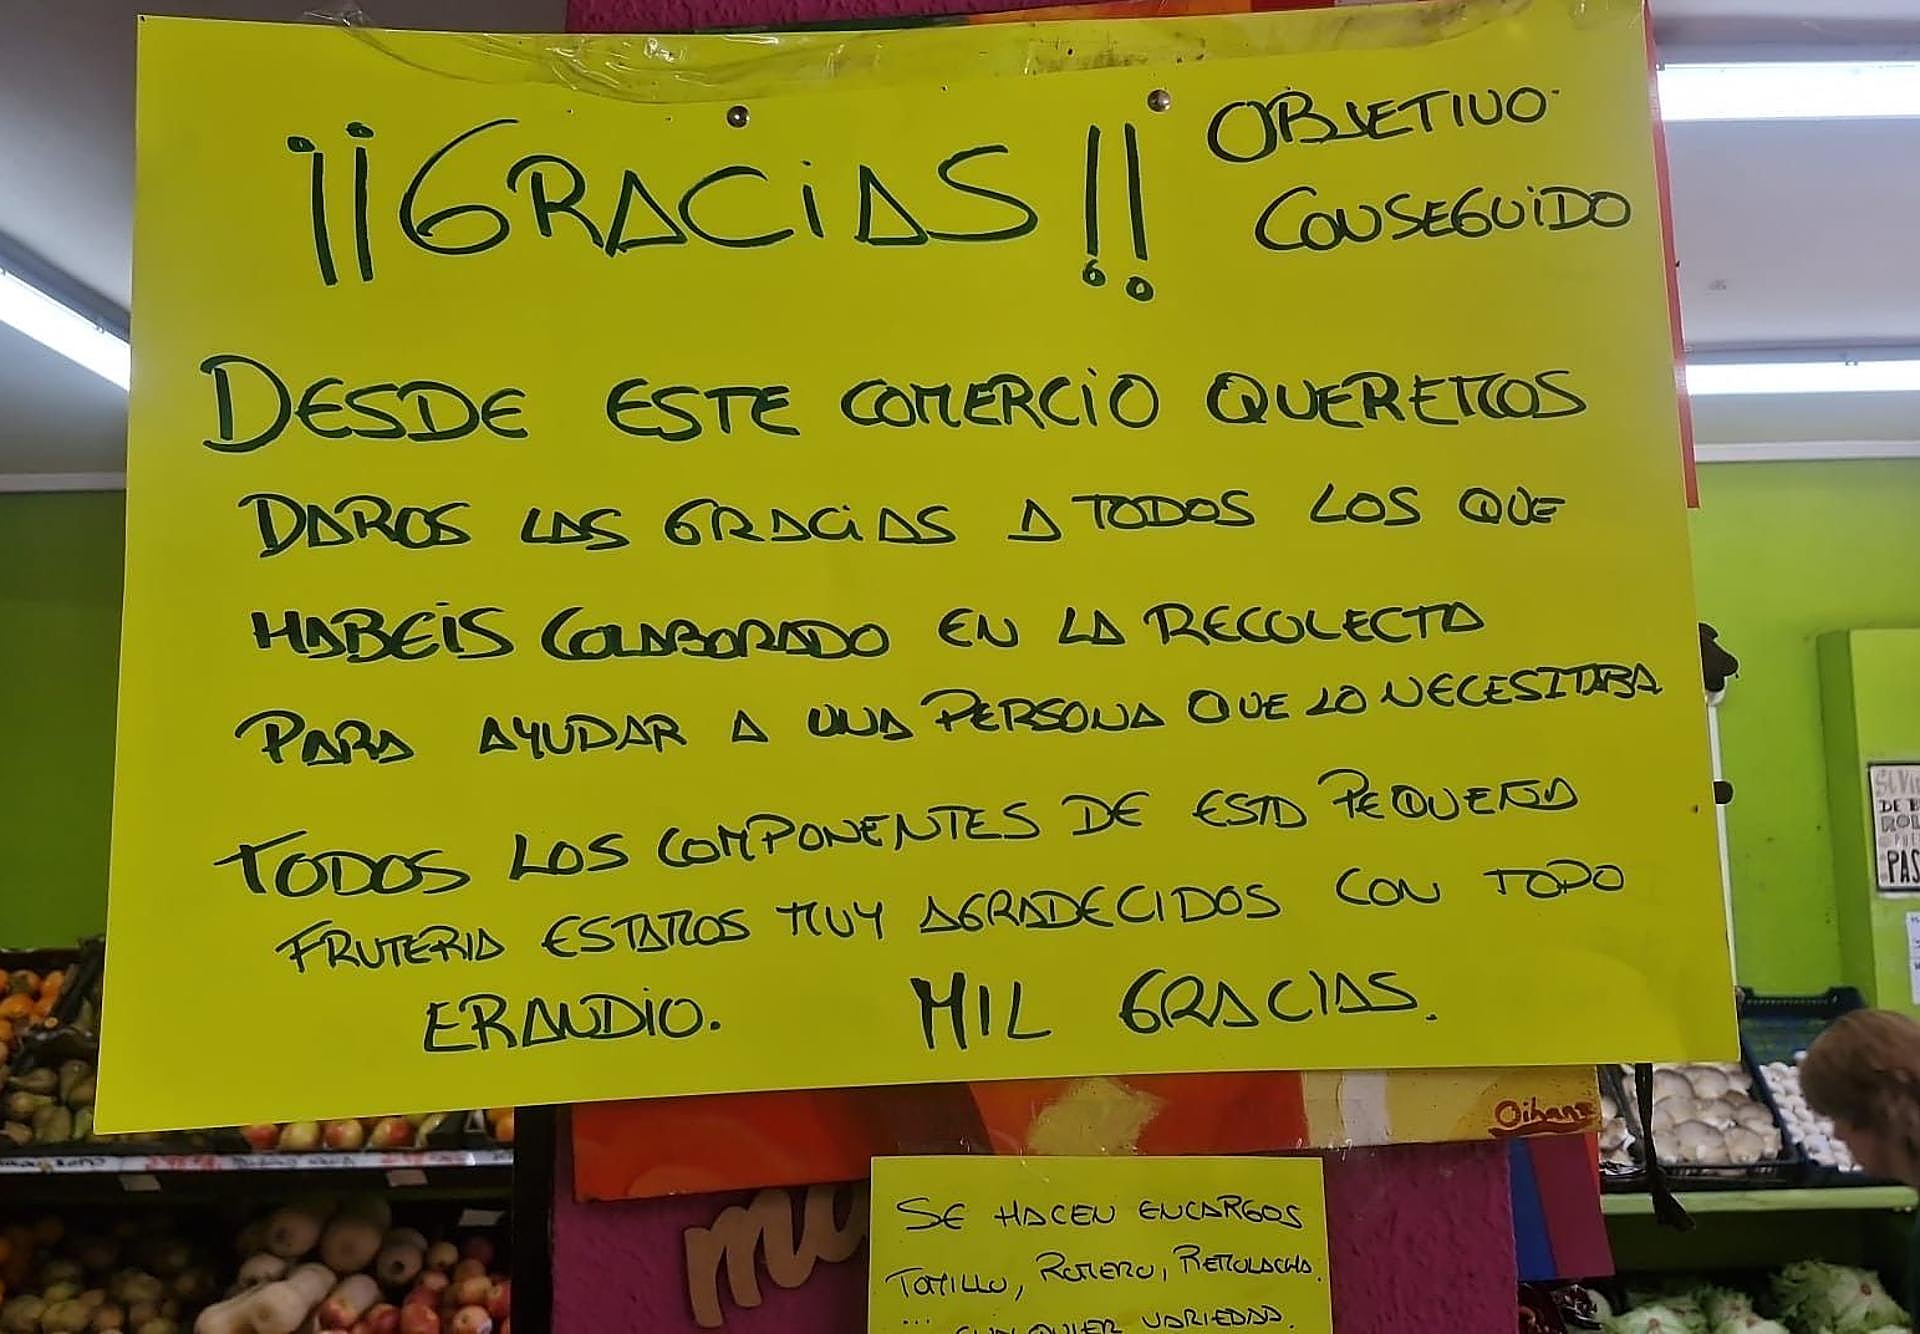 ¡¡GRACIAS!!
OBJETIVO
CONSEGUIDO
DESDE ESTE COMERCIO QUEREMOS
DAROS LAS GRACIAS A TODOS LOS QUE
HABEIS COLABORADO EN LA RECOLECTA
PARA AYUDAR A UNA PERSONA QUE LO NECESITABA
TODOS LOS COMPONENTES DE ESTA PEQUEÑA
FRUTERIA ESTAMOS MUY AGRADECIDOS CON TODO
ERANDIO. MIL GRACIAS.
Oihane
SE HACEN ENCARGOS
TOMILLO, ROMERO, REMOLACHA.
... CUALQUIER VARIEDAD.
DE
PAS